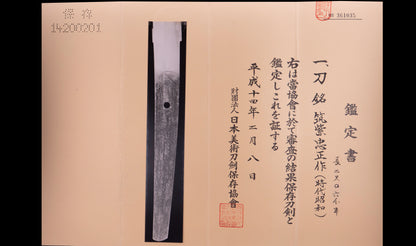 保存
14200201
№ 361035
鑑定書
一、刀 銘 筑紫忠正作(時代昭和)
長二尺
右は當協會に於て審査の結果保存刀剣と
鑑定しこれを証する
平成十四年二月八日
財団法人日本美術刀剣保存協會